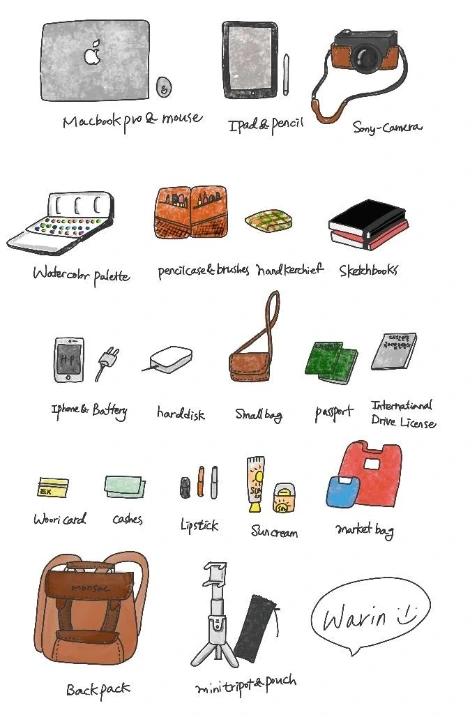 Macbook pro & mouse
Ipad & pencil
Sony-Camera
Watercolor palette
pencilcase & brushes
handkerchief
Sketchbooks
Iphone & Battery
harddisk
Small bag
passport
International
Drive License
Woori card
cashes
Lipstick
Suncream
market bag
monsac
Backpack
mini tripot & pouch
Warin